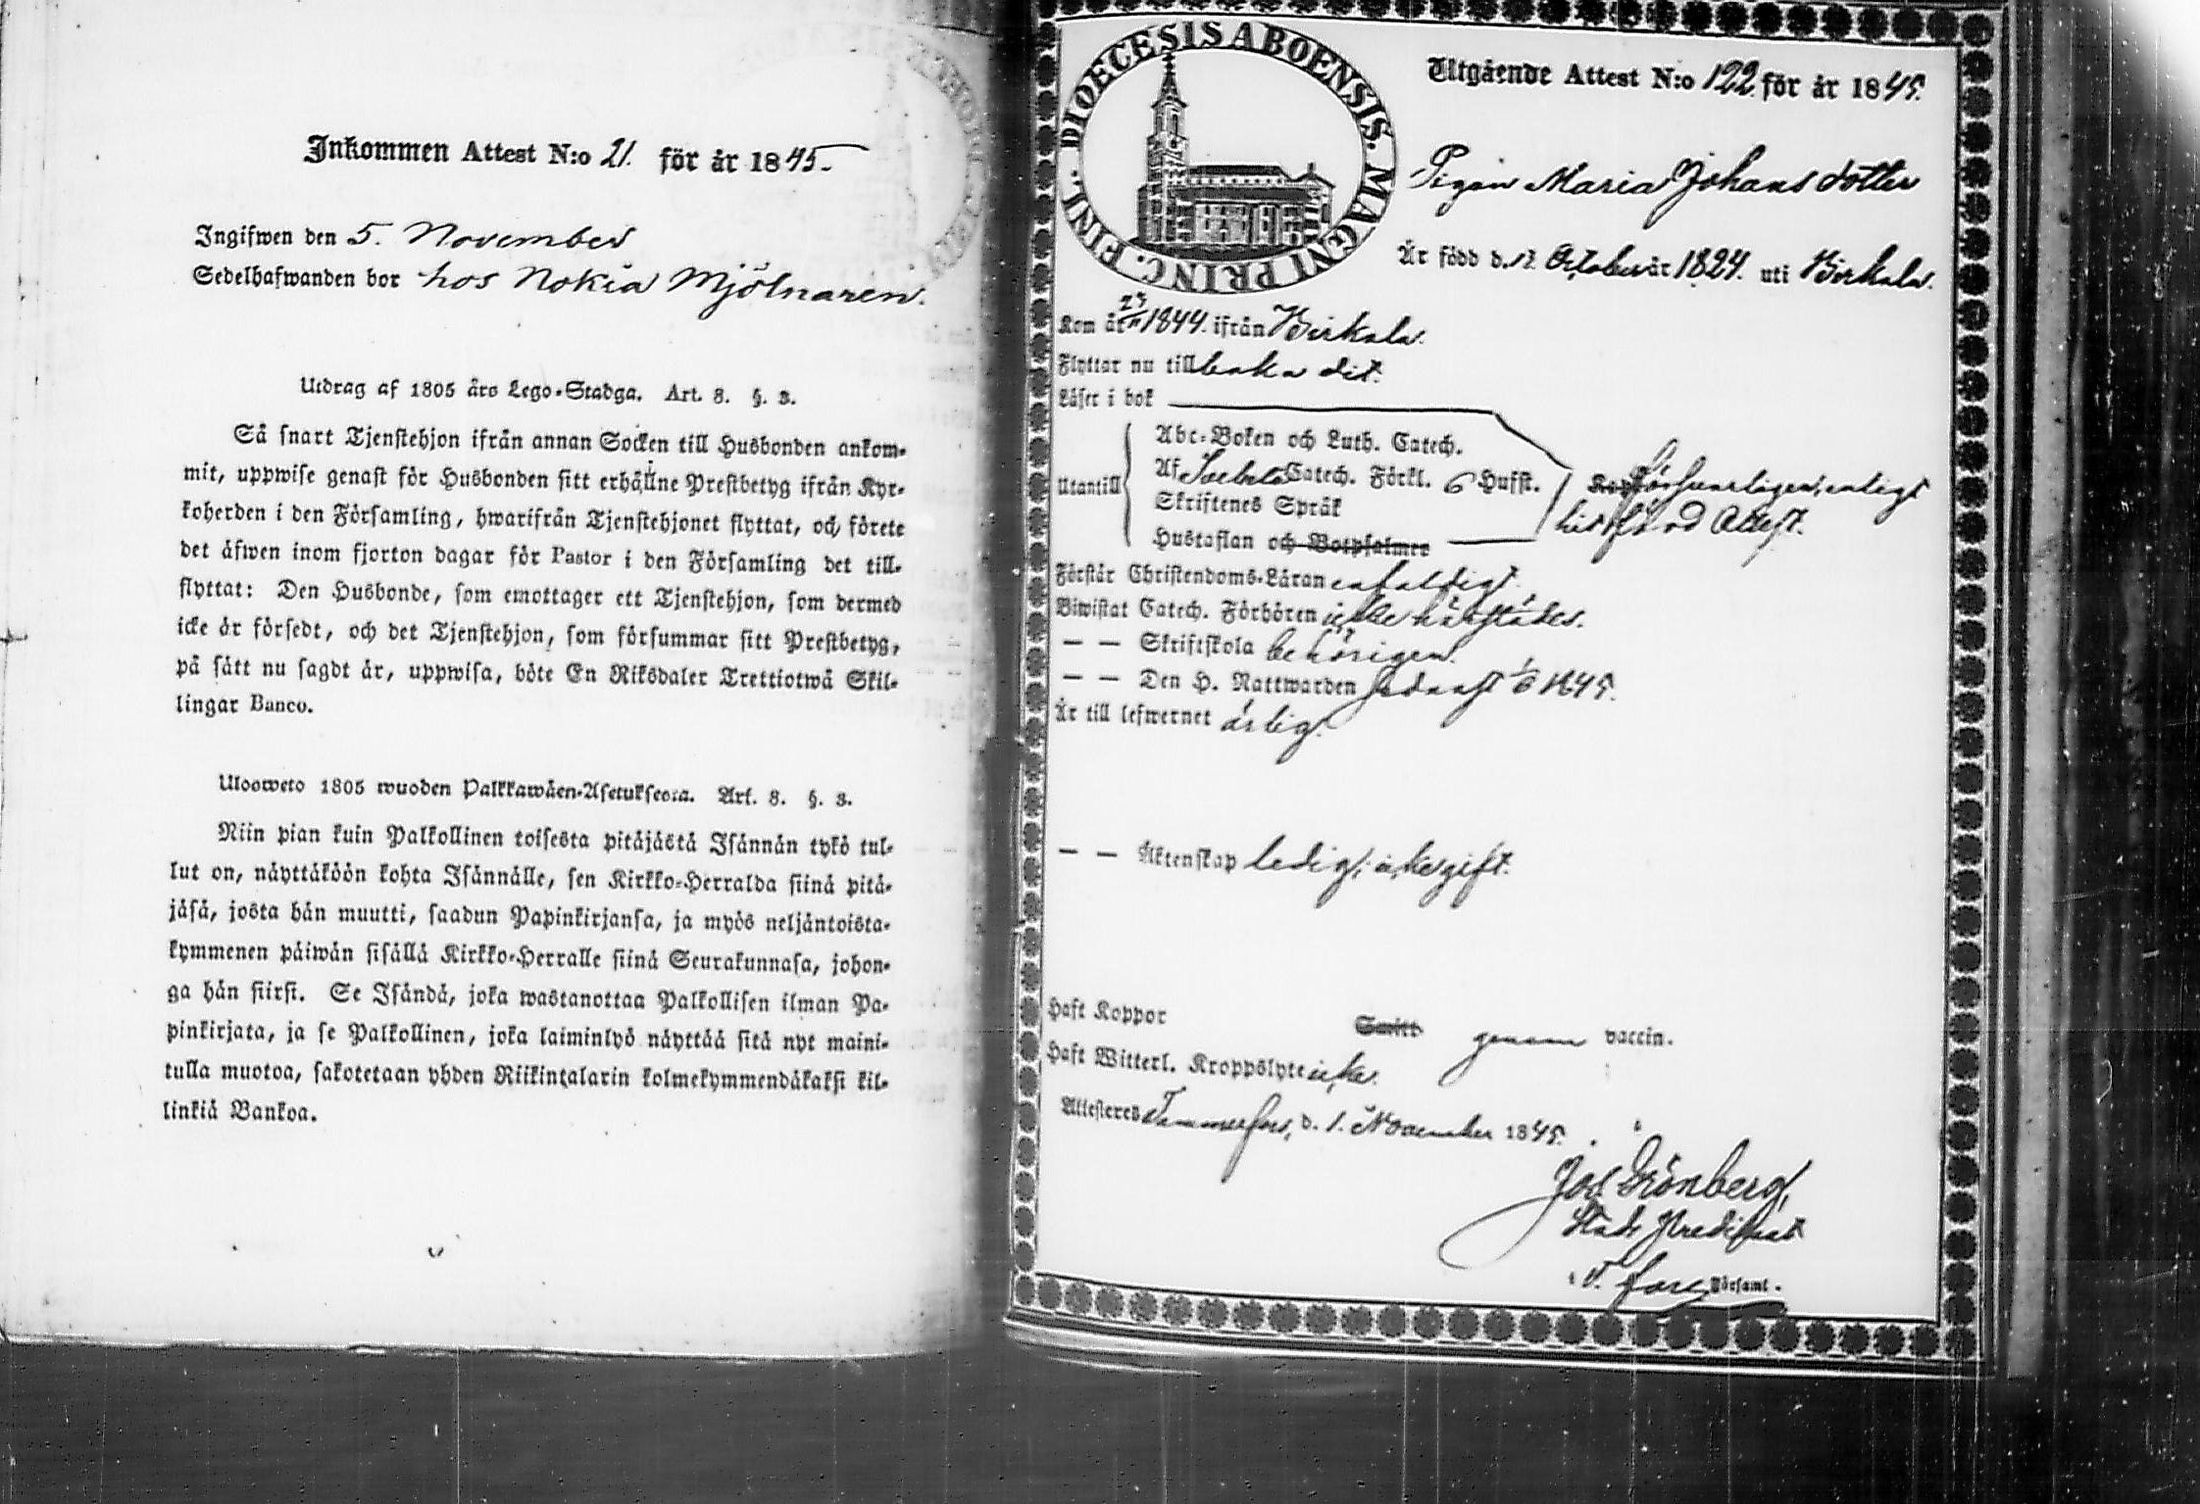 Inkommen Attest N:o 21. för år 1845.
Ingifwen den 5. November
Sedelhafwanden bor hos Nokia Mjölnaren.
Utdrag af 1805 års Lego-Stadga. Art. 8. §. 3.
Så snart Tjenstehjon ifrån annan Socken till Husbonden ankom-
mit, uppwise genast för Husbonden sitt erhållne Prestbetyg ifrån Kyr-
koherden i den Församling, hwarifrån Tjenstehjonet flyttat, och förete
det äfwen inom fjorton dagar för Pastor i den Församling det till-
flyttat: Den Husbonde, som emottager ett Tjenstehjon, som dermed
icke är försedt, och det Tjenstehjon, som försummar sitt Prestbetyg,
på sätt nu sagdt är, uppwisa, böte En Riksdaler Trettiotwå Skil-
lingar Banco.
Uloosweto 1805 wuoden Palkkawäen-Asetuksesta. Art. 8. §. 3.
Niin pian kuin Palkollinen toisesta pitäjästä Isännän tykö tul-
lut on, näyttäköön kohta Isännälle, sen Kirkko-Herralda siinä pitä-
jäsä, josta hän muutti, saadun Papinkirjansa, ja myös neljäntoista-
kymmenen päiwän sisällä Kirkko-Herralle siinä Seurakunnasa, johon-
ga hän siirsi. Se Isändä, joka wastanottaa Palkollisen ilman Pa-
pinkirjata, ja se Palkollinen, joka laiminlyö näyttää sitä nyt maini-
tulla muotoa, sakotetaan yhden Riikintalarin kolmekymmendäkaksi kil-
linkiä Bankoa.
DIOECESIS ABOENSIS. MAGNI PRINC. FINL.
Utgående Attest N:o 122 för år 1845.
Pigan Maria Johans dotter
Är född d. 12 October år 1824. uti Birkala.
Kom år 23/11 1844. ifrån Birkala.
Flyttar nu tillbaka dit.
Läser i bok
Abc-Boken och Luth. Catech.
Utantill
Af Svebelii Catech. Förkl. 6 Hufst.
Skriftenes Språk
Hustaflan och Botpsalmre
Försvarligen, enligt
hitförd Attest.
Förstår Christendoms-Läran enfaldigt.
Biwistat Catech. Förhören icke härstädes.
— — Skriftskola behörigen.
— — Den H. Nattwarden sednast 1/6 1845.
Är till lefwernet ärlig.
— — Äktenskap ledig, icke gift.
Haft Koppor Smitt genom vaccin.
Haft Witterl. Kroppslyte icke.
Attesteres Tammerfors, d. 1. November 1845.
Jos Grönberg,
Stads Predikant
i T. fors Församl.